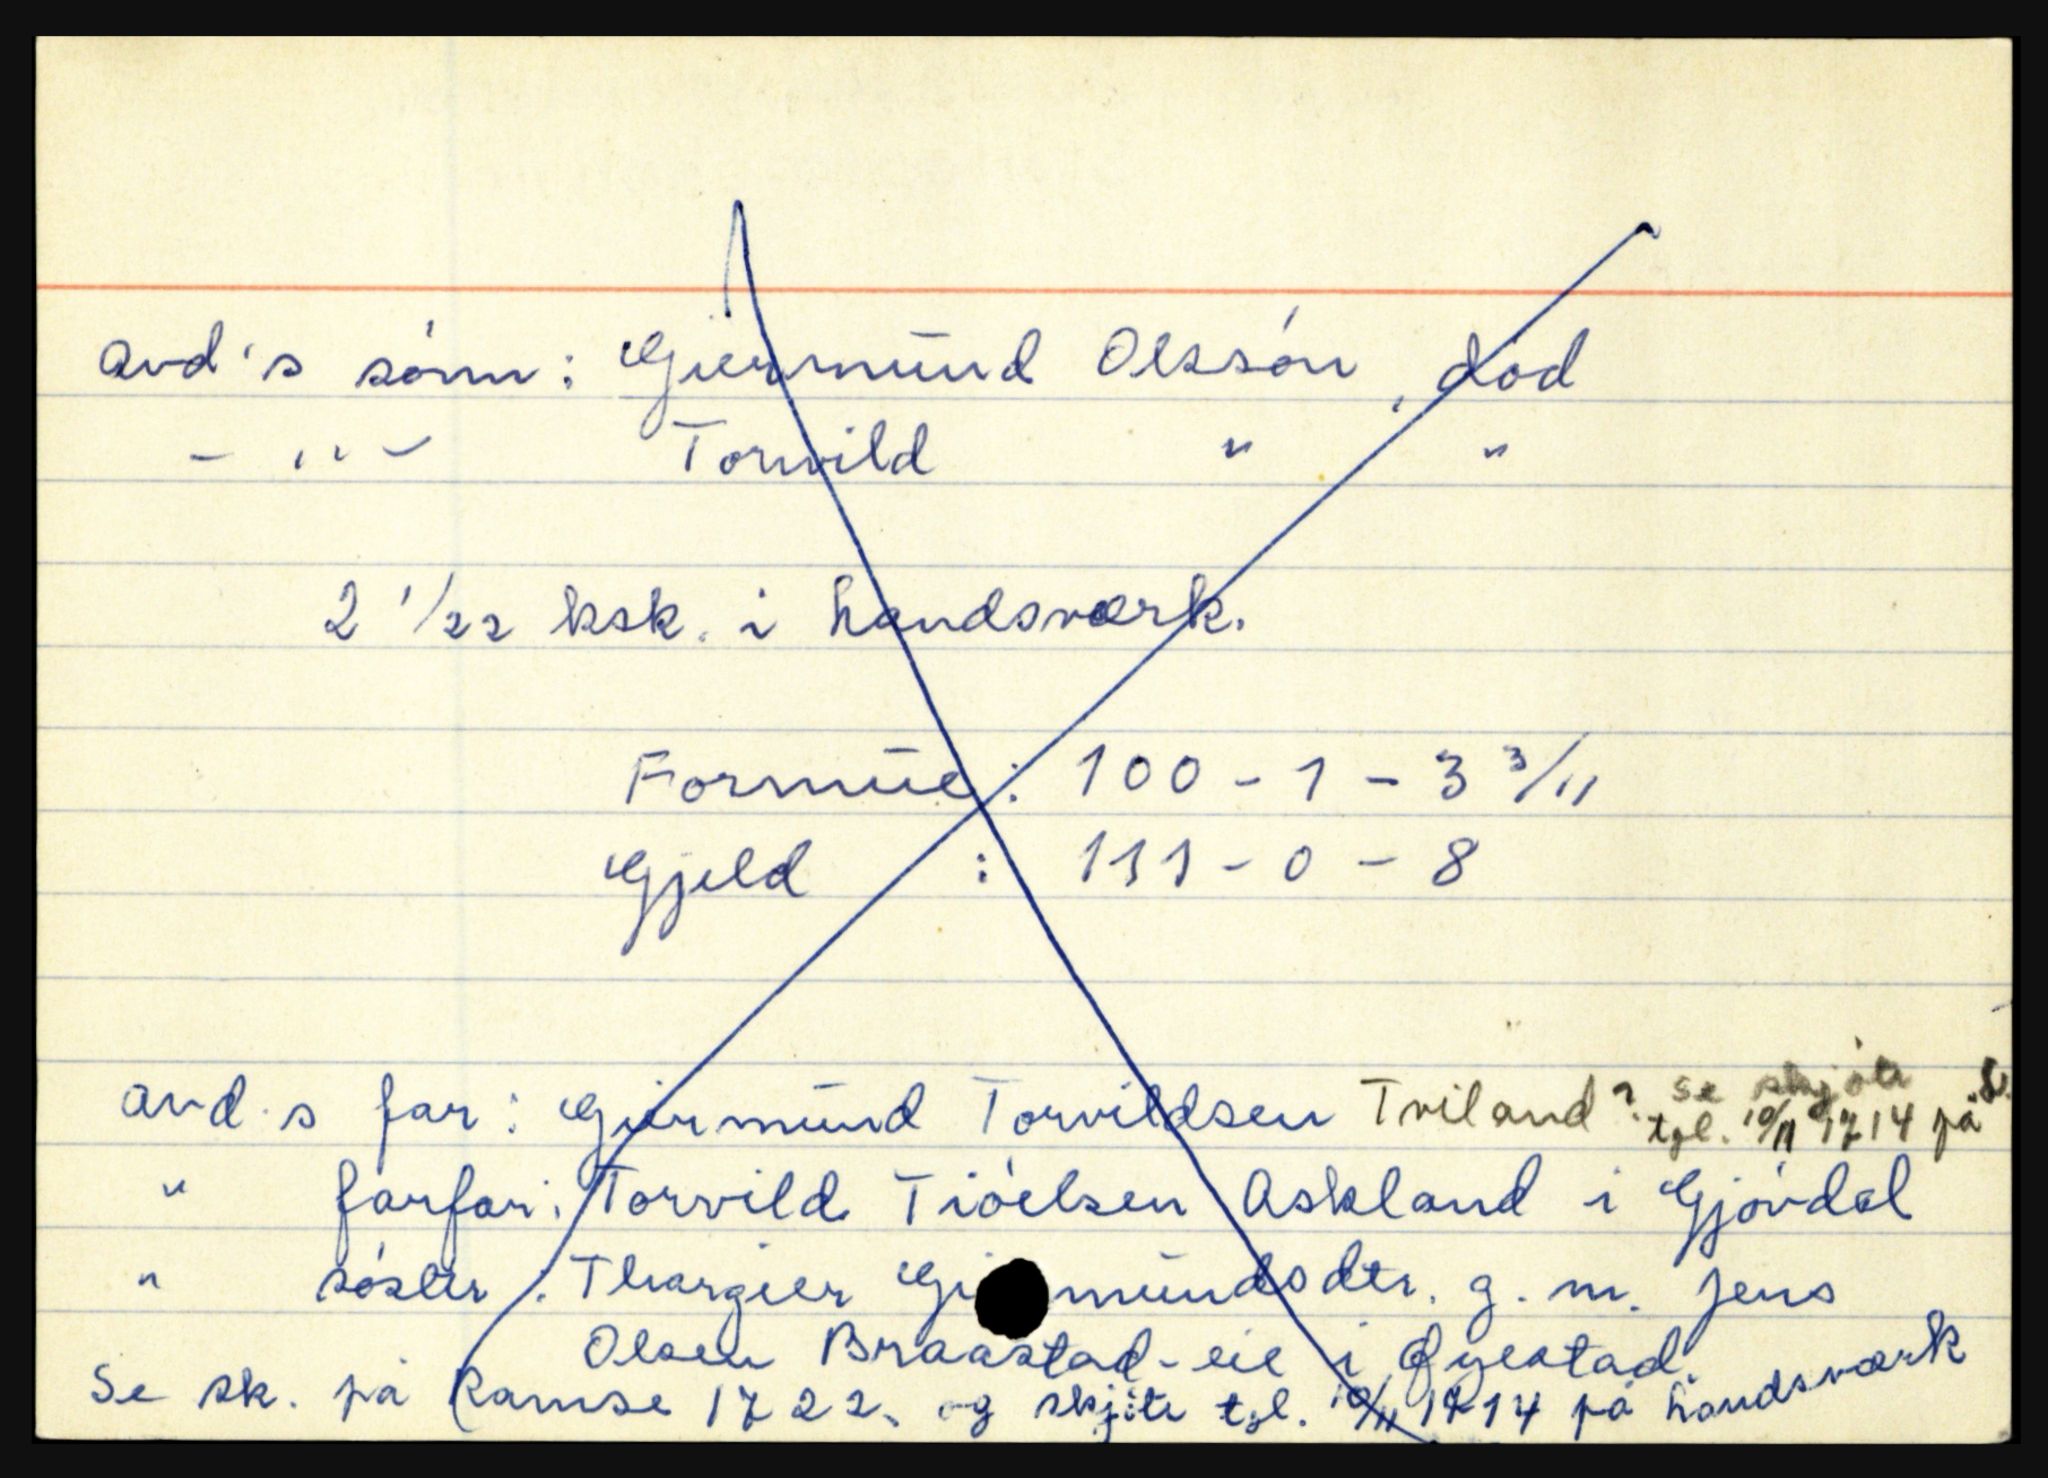 avd's sønn: Gjermund Olssøn, død
- " - Torvild " "
2 1/22 ksk. i Handsværk.
Formue: 100 - 1 - 3 3/11
Gjeld : 111 - 0 - 8
avd.s far: Gjermund Torvildsen Tviland? se skjøte
tgl. 10/11 1714 på
" farfar: Torvild Tióelsen Askland i Gjøvdal
" søster: Thargier Gi mundsdtr. g. m. Jens
Olsen Braastad-eie i Øyestad.
Se sk. på Ramse 1722. og skjøte tgl. 10/11 1714 på Handsværk